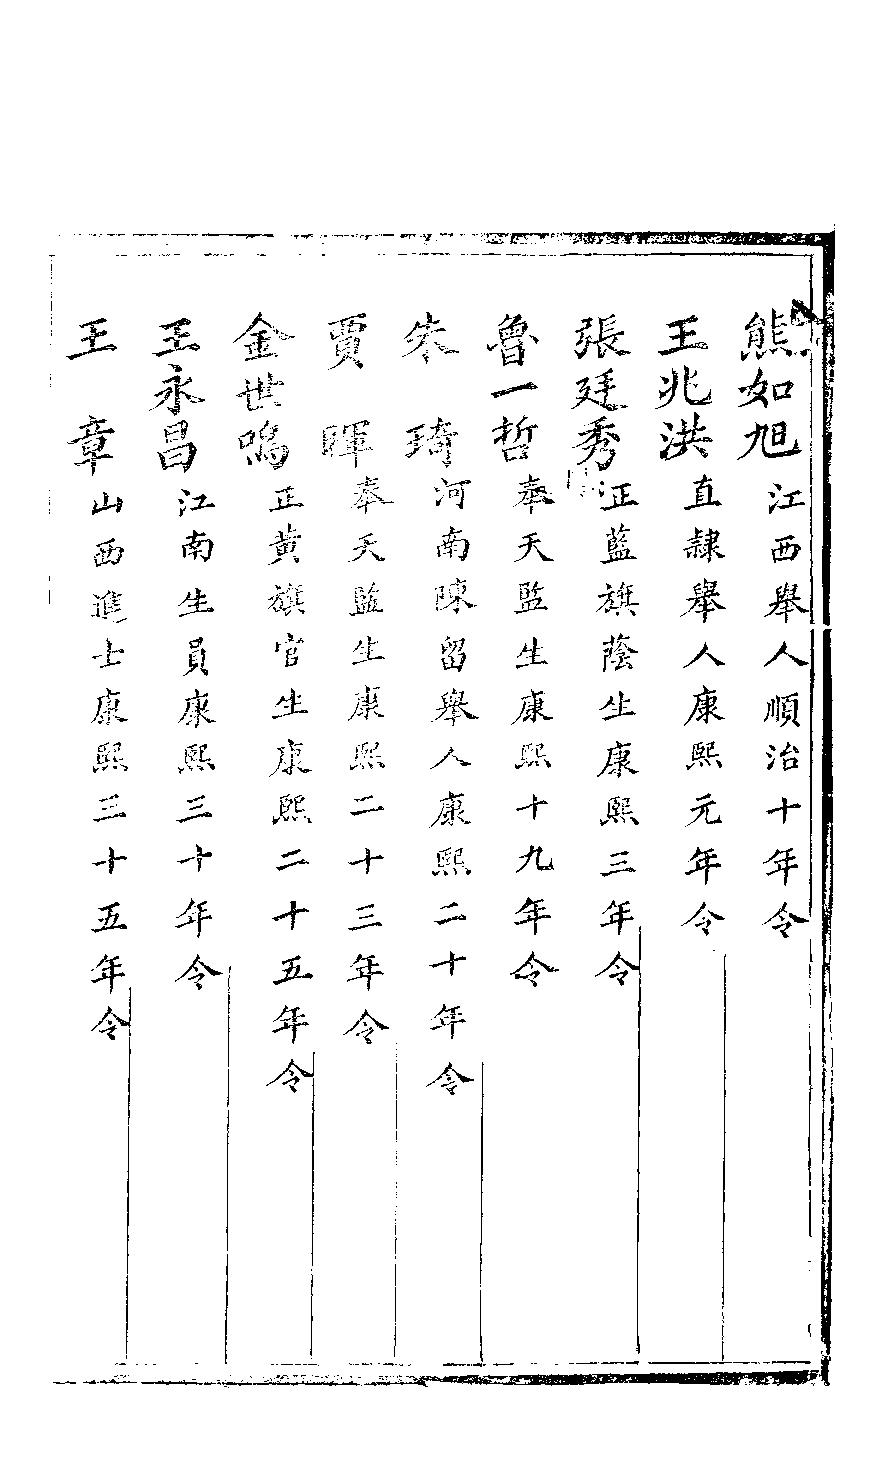 熊如旭江西舉人順治十年令
王兆洪直隸舉人康熙元年令
張廷秀正藍旗蔭生康熙三年令
魯一哲奉天監生康熙十九年令
朱琦河南陳留舉人康熙二十年令
賈暉奉天監生康熙二十三年令
金世鳴正黃旗官生康熙二十五年令
王永昌江南生員康熙三十年令
王章山西進士康熙三十五年令